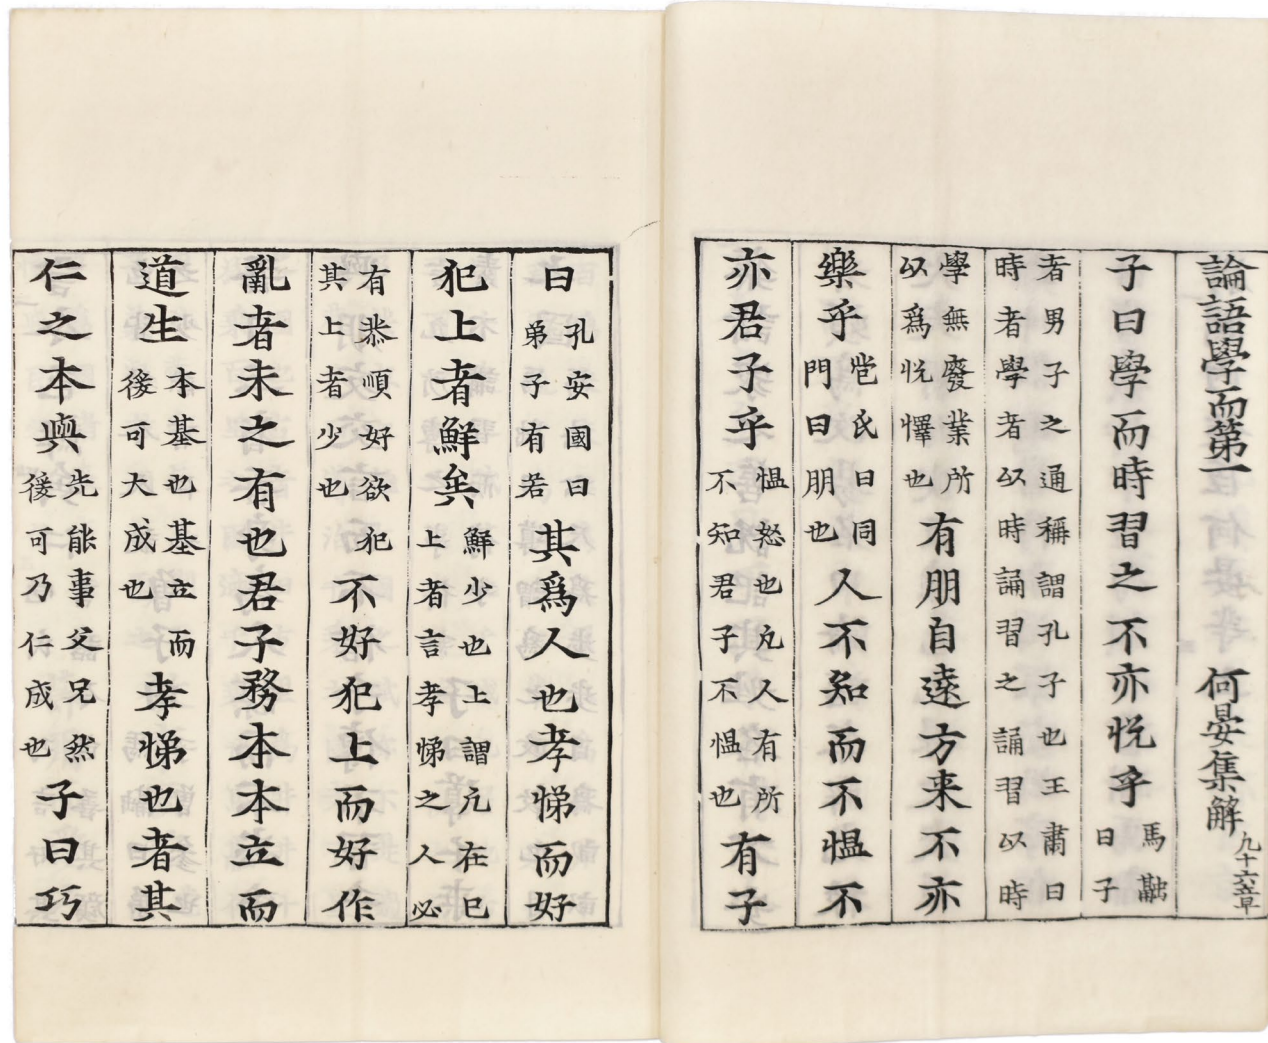 論語學而第一 何晏集解 凡十六章
子曰學而時習之不亦悅乎 馬融曰子
者男子之通稱謂孔子也王肅曰時者學者以時誦習之誦習以時
學無廢業所以爲悅懌也有朋自遠方来不亦
樂乎苞氏曰同門曰朋也人不知而不愠不
亦君子乎愠怒也凢人有所不知君子不愠也有子
曰孔安國曰弟子有若其爲人也孝悌而好
犯上者鮮矣鮮少也上謂凢在己上者言孝悌之人必
有恭順好欲犯其上者少也不好犯上而好作
亂者未之有也君子務本本立而
道生本基也基立而後可大成也孝悌也者其
仁之本與先能事父兄然後可乃仁成也子曰巧